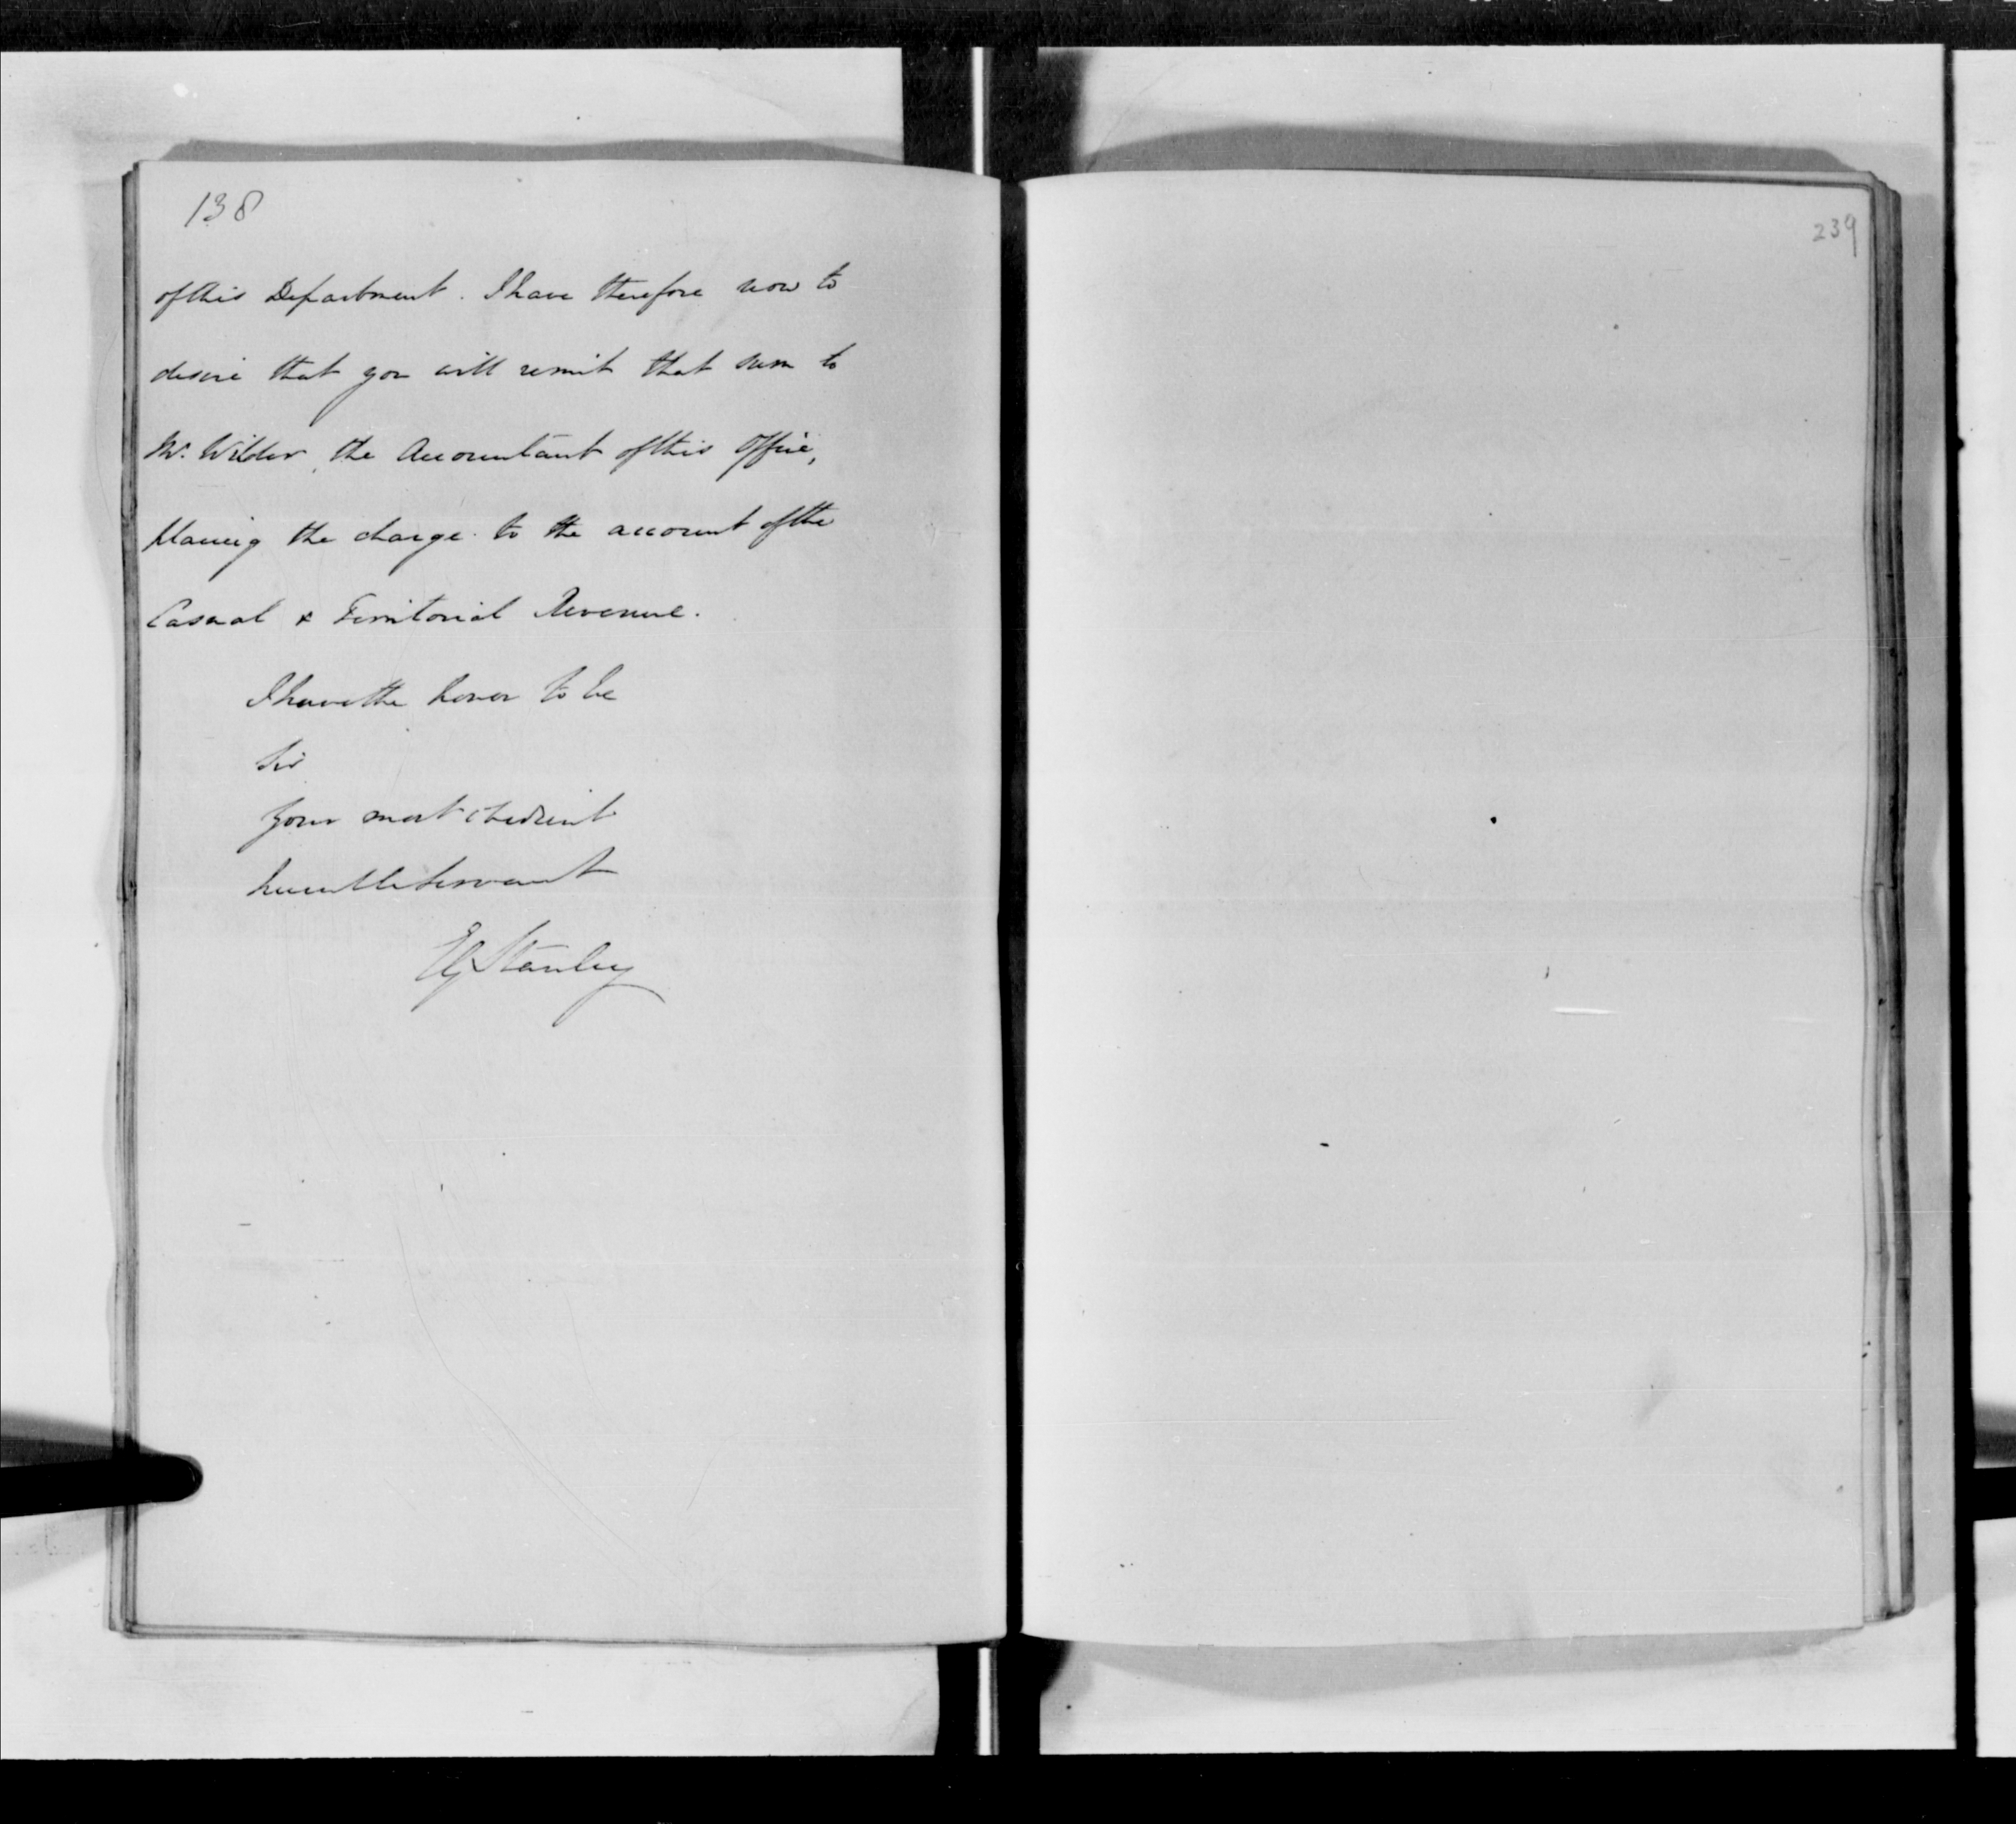 138
of this Department. I have therefore now to
desire that you will remit that sum to
Mr. Wilder, the Accountant of this Office,
placing the charge to the account of the
Casual & Territorial Revenue.
I have the honor to be
Sir
Your most obedient
humble Servant
EG Stanley
239